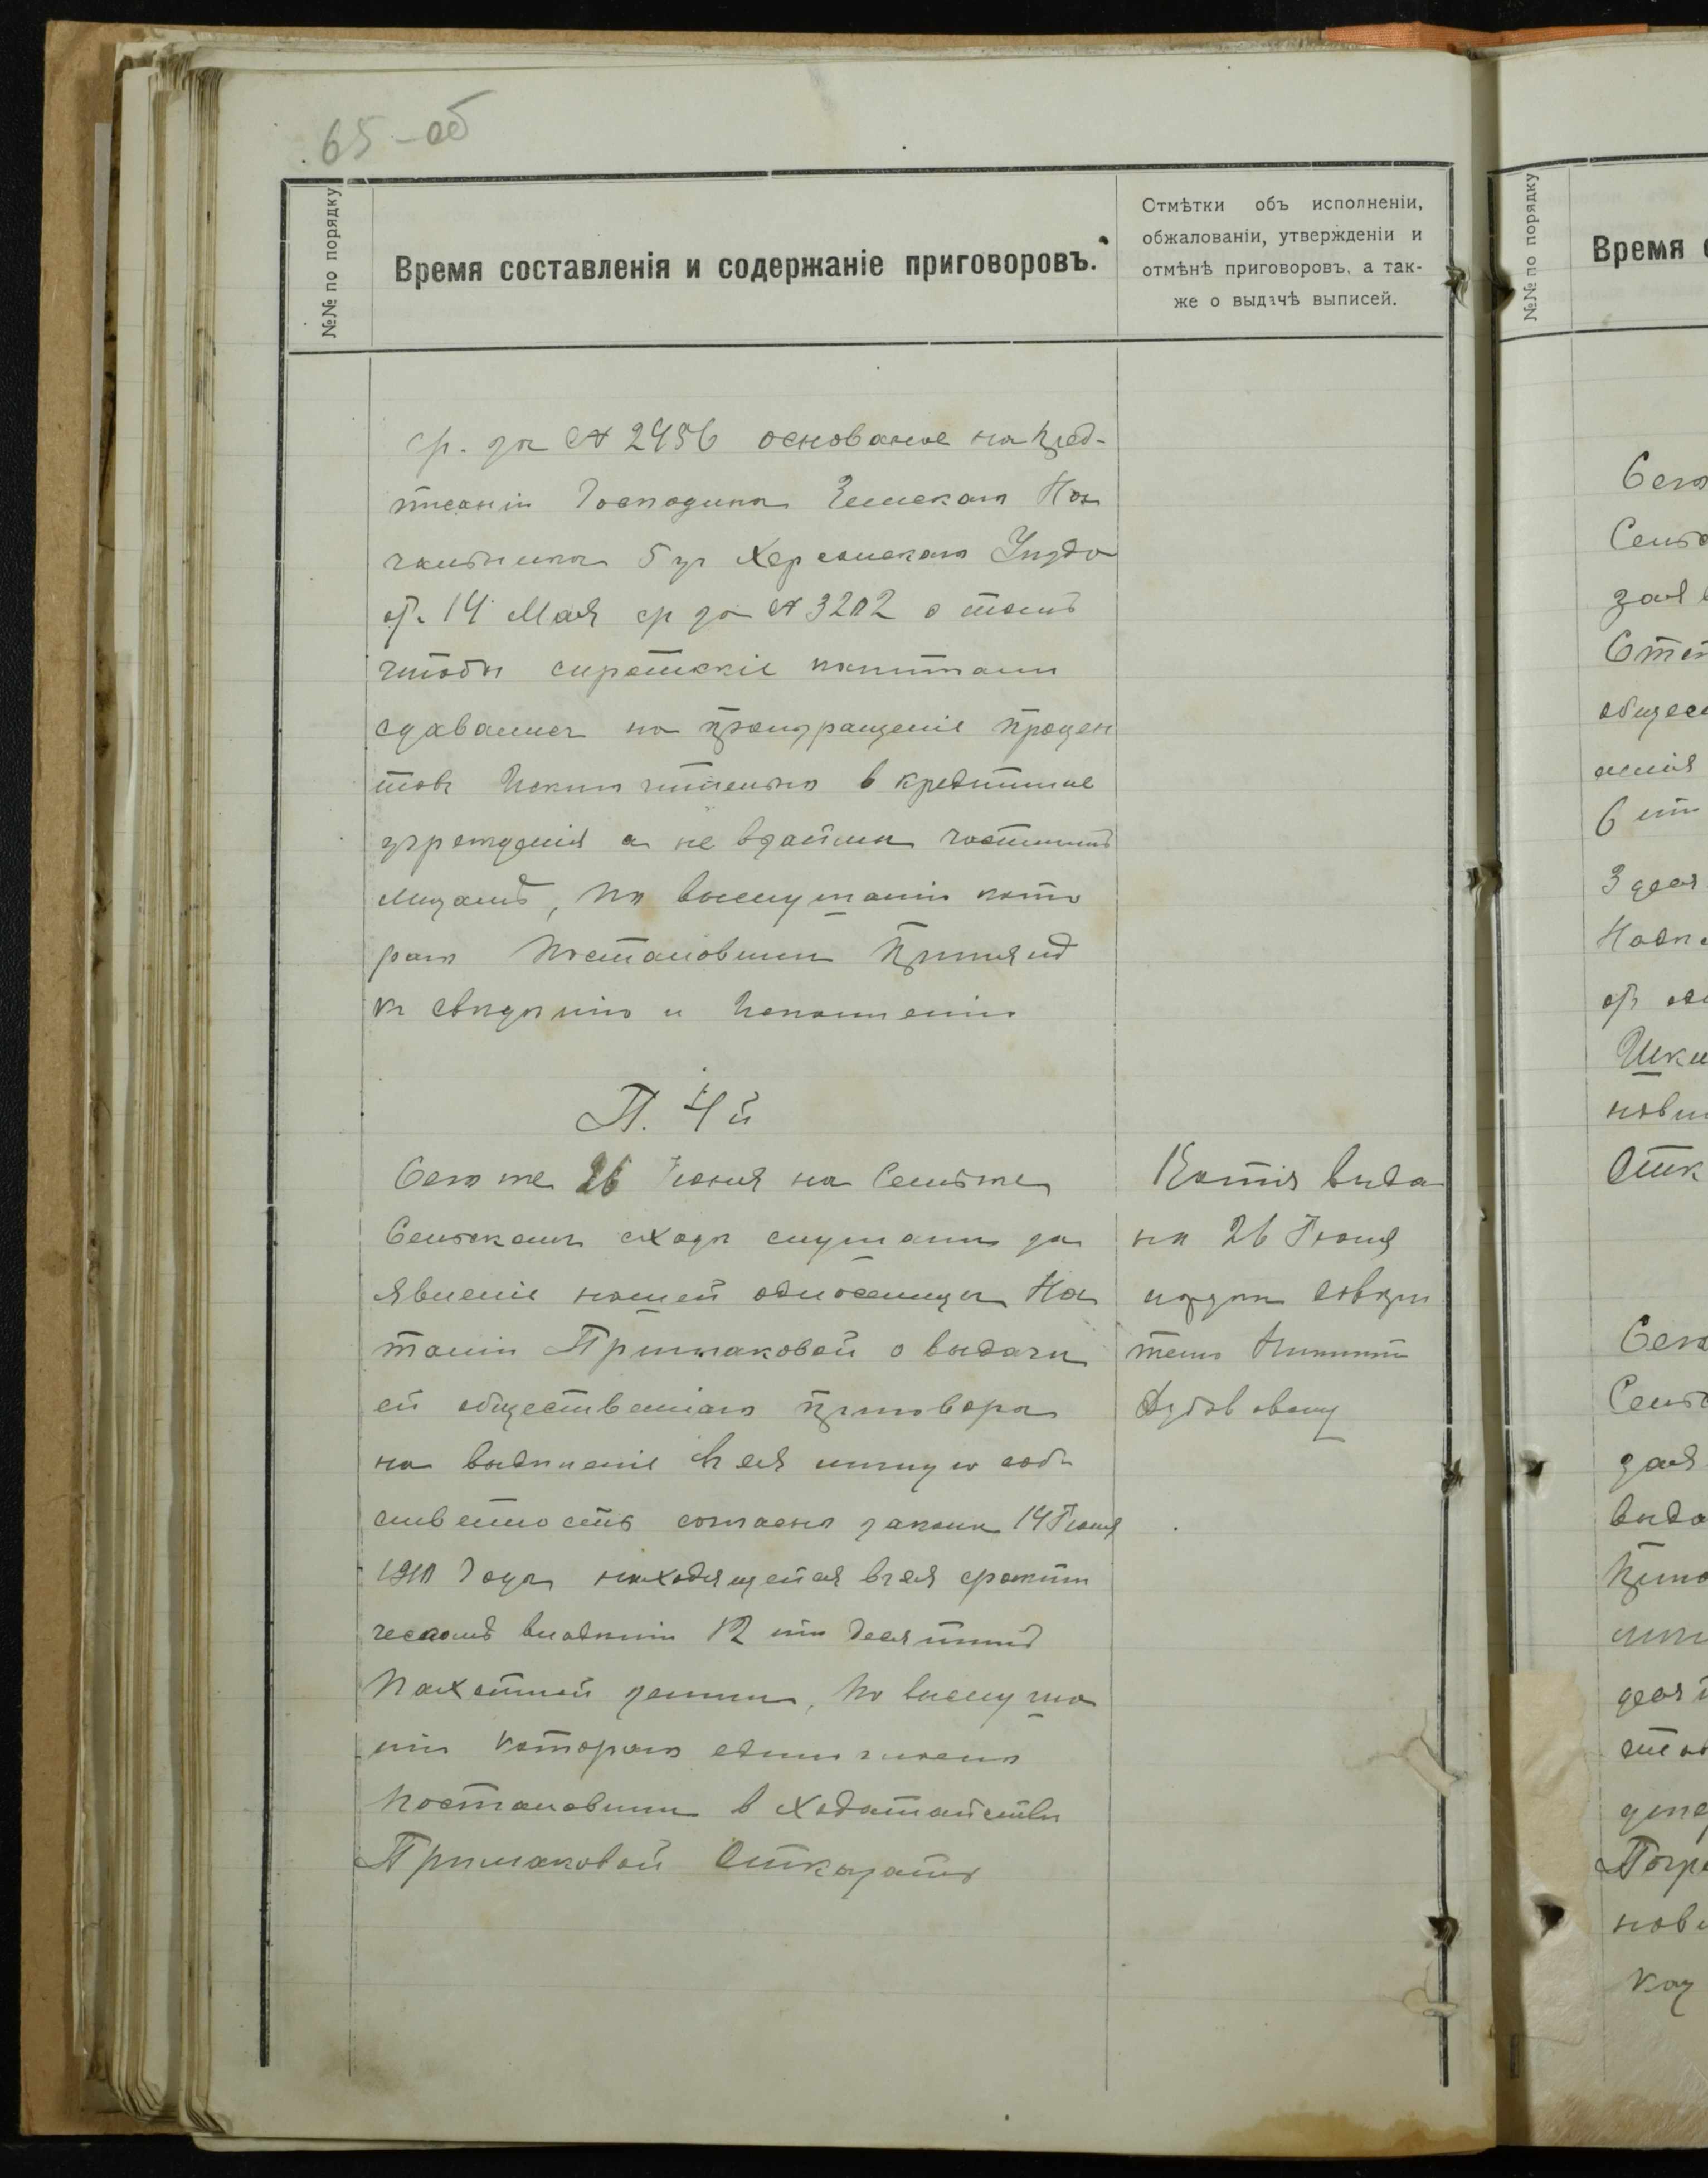 65-об
№№ по порядку
Время составленія и содержаніе приговоровъ.
Отмѣтки объ исполненіи,
обжалованіи, утвержденіи и
отмѣнѣ приговоровъ, а так-
же о выдачѣ выписей.
ср. за № 2456 основаное на Пред-
писаніи Господина Земскаго На
чальника 5 уч Херсонскаго Уѣзда
от. 14 Мая ср за № 3202 о томъ
чтобы сиротскіе капиталы
сдавались на приращеніе процен
товъ Исключительно в кредитные
учрежденія а не взаймы частнымъ
лицамъ, По выслушаніи кото
раго Постановили Принять
къ свѣдѣнію и Исполненію
П. 4й
Сего же 26 Іюня на Сельже
Сельскомъ сходѣ слушали за
явленіе нашей односелицы На
таліи Примаковой о выдачи
ей общественнаго приговора
на выдѣленіе въ ея личную соб
ственность согласно закона 14 Іюня
1910 Года находящейся въ ея фактич
ческомъ владѣніи 12 ти десятинъ
Пахатной земли, По выслуша
ніи котораго единогласно
Постановили в Ходатайствѣ
Примаковой Отказать
Копія выда
на 26 Іюня
довѣри
телю
Дубововому
№№ по порядку
Время
Сего
Сельс
зая
общес
6 ти
3 деся
Шки
нови
Отк
Сего
Сельс
зая
выда
деся
Погре
нов
каз